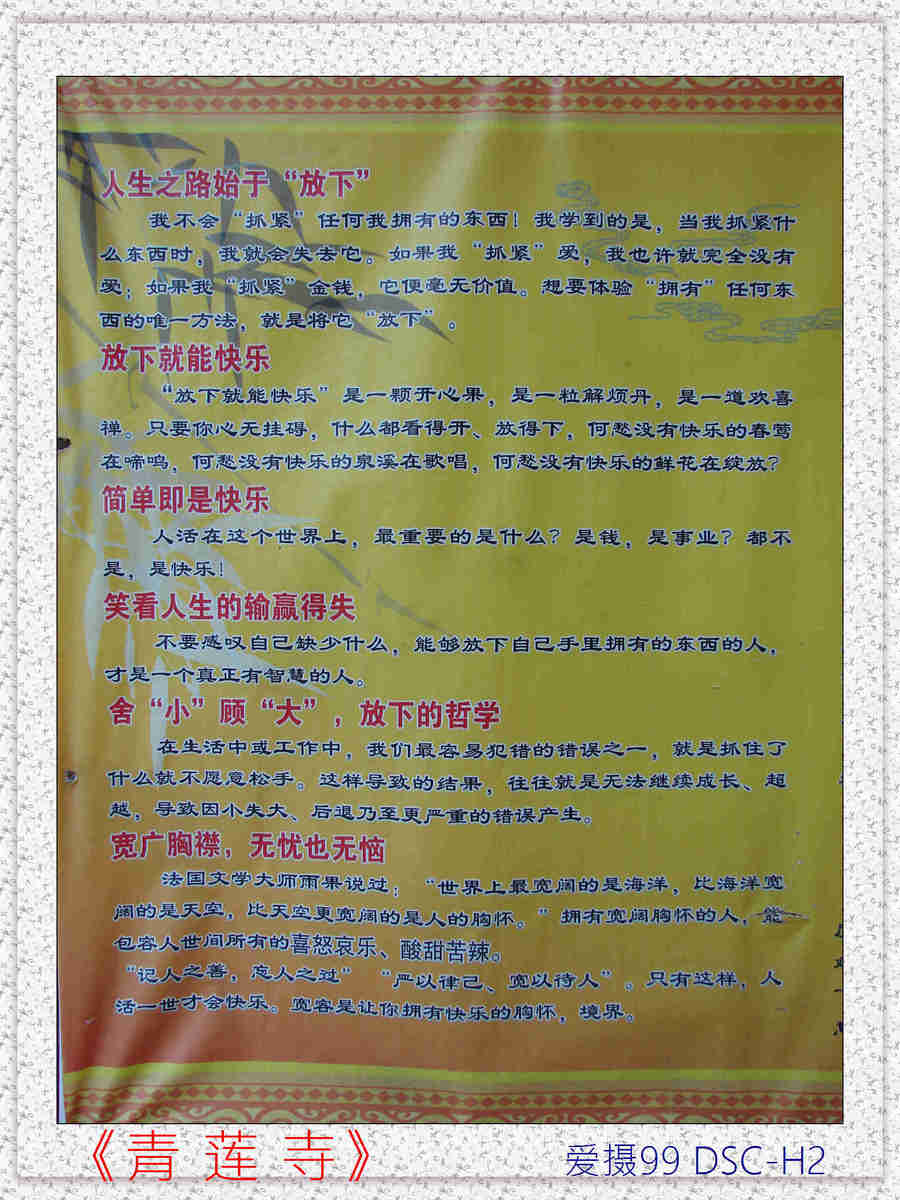 人生之路始于“放下”
我不会“抓紧”任何我拥有的东西！我学到的是，当我抓紧什
么东西时，我就会失去它。如果我“抓紧”爱，我也许就完全没有
爱；如果我“抓紧”金钱，它便毫无价值。想要体验“拥有”任何东
西的唯一方法，就是将它“放下”。
放下就能快乐
“放下就能快乐”是一颗开心果，是一粒解烦丹，是一道欢喜
禅。只要你心无挂碍，什么都看得开、放得下，何愁没有快乐的春莺
在啼鸣，何愁没有快乐的泉溪在歌唱，何愁没有快乐的鲜花在绽放？
简单即是快乐
人活在这个世界上，最重要的是什么？是钱，是事业？都不
是，是快乐！
笑看人生的输赢得失
不要感叹自己缺少什么，能够放下自己手里拥有的东西的人，
才是一个真正有智慧的人。
舍“小”顾“大”，放下的哲学
在生活中或工作中，我们最容易犯错的错误之一，就是抓住了
什么就不愿意松手。这样导致的结果，往往就是无法继续成长、超
越，导致因小失大、后退乃至更严重的错误产生。
宽广胸襟，无忧也无恼
法国文学大师雨果说过：“世界上最宽阔的是海洋，比海洋宽
阔的是天空，比天空更宽阔的是人的胸怀。”拥有宽阔胸怀的人，能
包容人世间所有的喜怒哀乐、酸甜苦辣。
“记人之善，忘人之过”“严以律己、宽以待人”。只有这样，人
活一世才会快乐。宽容是让你拥有快乐的胸怀，境界。
《青莲寺》
爱摄99 DSC-H2